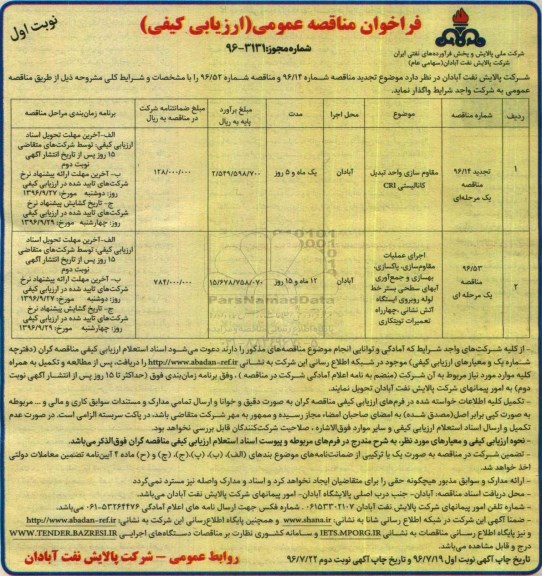 نوبت اول
فراخوان مناقصه عمومی(ارزیابی کیفی)
شماره مجوز:۳۱۳۱-۹۶
شرکت ملی پالایش و پخش فرآورده‌های نفتی ایران
شرکت پالایش نفت آبادان(سهامی عام)
شرکت پالایش نفت آبادان در نظر دارد موضوع تجدید مناقصه شماره ۹۶/۱۴ و مناقصه شماره ۹۶/۵۲ را با مشخصات و شرایط کلی مشروحه ذیل از طریق مناقصه
عمومی به شرکت واجد شرایط واگذار نماید.
ردیف شماره مناقصه موضوع محل اجرا مدت مبلغ برآورد پایه به ریال مبلغ ضمانتنامه شرکت در مناقصه به ریال برنامه زمان‌بندی مراحل مناقصه
۱
تجدید ۹۶/۱۴
مناقصه
یک مرحله‌ای
مقاوم سازی واحد تبدیل
کاتالیستی CRI
آبادان
یک ماه و ۵ روز
۲/۵۴۹/۵۹۸/۷۰۰
۱۲۸/۰۰۰/۰۰۰
الف-آخرین مهلت تحویل اسناد
ارزیابی کیفی: توسط شرکت‌های متقاضی
۱۵ روز پس از تاریخ انتشار آگهی
نوبت دوم
ب- آخرین مهلت ارائه پیشنهاد نرخ
شرکت‌های تایید شده در ارزیابی کیفی
روز: دوشنبه مورخ: ۱۳۹۶/۹/۲۷
ج- تاریخ گشایش پیشنهاد نرخ
شرکت‌های تایید شده در ارزیابی کیفی
روز: چهارشنبه مورخ: ۱۳۹۶/۹/۲۹
۲
۹۶/۵۳
مناقصه
یک مرحله ای
اجرای عملیات
مقاوم‌سازی، پاکسازی،
بهسازی و جمع‌آوری
آبهای سطحی بستر خط
لوله روبروی ایستگاه
آتش نشانی-چهارراه
تعمیرات تویتکاری
آبادان
۱۲ ماه و ۱۵ روز
۱۵/۶۷۸/۷۵۸/۰۷۰
۷۸۴/۰۰۰/۰۰۰
الف-آخرین مهلت تحویل اسناد
ارزیابی کیفی: توسط شرکت‌های متقاضی
۱۵ روز پس از تاریخ انتشار آگهی
نوبت دوم
ب- آخرین مهلت ارائه پیشنهاد نرخ
شرکت‌های تایید شده در ارزیابی کیفی
روز: دوشنبه مورخ: ۱۳۹۶/۹/۲۷
ج- تاریخ گشایش پیشنهاد نرخ
شرکت‌های تایید شده در ارزیابی کیفی
روز: چهارشنبه مورخ: ۱۳۹۶/۹/۲۹
ParsNamadData
- از کلیه شرکت‌های واجد شرایط که آمادگی و توانایی انجام موضوع مناقصه‌های مذکور را دارند دعوت می‌شود اسناد استعلام ارزیابی کیفی مناقصه گران (دفترچه
شماره یک و معیارهای ارزیابی کیفی) موجود در شبکه اطلاع رسانی این شرکت به نشانی http://www.abadan-ref.ir را دریافت، پس از مطالعه و تکمیل به همراه
کلیه موارد مورد نیاز مربوط به آن شرکت (منضم به نامه اعلام آمادگی شرکت در مناقصه)، وفق برنامه زمان‌بندی فوق (حداکثر تا ۱۵ روز پس از انتشار آگهی نوبت
دوم) به امور پیمانهای شرکت پالایش نفت آبادان تحویل نمایند.
- تکمیل کلیه اطلاعات خواسته شده در فرم‌های ارزیابی کیفی مناقصه گران به صورت دقیق و خوانا و ارسال تمامی مدارک و مستندات سوابق کاری و مالی و ... مربوطه
به صورت کپی برابر اصل(مصدق شده) به امضای صاحبان امضاء مجاز رسیده و ممهور به مهر شرکت متقاضی باشد، در پاکت سربسته الزامی است. در صورت عدم
تکمیل و ارسال اسناد استعلام ارزیابی کیفی و سایر موارد فوق‌الاشاره ، صلاحیت شرکت‌کنندگان قابل بررسی نخواهد بود.
- نحوه ارزیابی کیفی و معیارهای مورد نظر، به شرح مندرج در فرم‌های مربوطه و پیوست اسناد استعلام ارزیابی کیفی مناقصه گران فوق‌الذکر می‌باشد.
- تضمین شرکت در مناقصه به صورت یک یا ترکیبی از ضمانت‌نامه‌های موضوع بندهای (الف)، (ب)، (پ)،(ج)، (چ) و (ح) ماده ۴ آیین‌نامه تضمین معاملات دولتی
اخذ خواهد شد.
- ارائه مدارک و سوابق مذبور هیچگونه حقی را برای متقاضیان ایجاد نخواهد کرد و اسناد و مدارک واصله نیز مسترد نمی‌گردد
- محل دریافت اسناد مناقصه: آبادان- جنب درب اصلی پالایشگاه آبادان- امور پیمانهای شرکت پالایش نفت آبادان می‌باشد.
- شماره تلفن امور پیمانهای شرکت پالایش نفت آبادان: ۰۶۱۵۳۳۰۲۱۰۷ . شماره فکس جهت ارسال نامه های اعلام آمادگی ۵۳۲۶۴۴۷۶-۰۶۱ می‌باشد.
- ضمنا آگهی این شرکت در شبکه اطلاع رسانی شانا به نشانی: www.shana.ir و همچنین پایگاه اطلاع‌رسانی این شرکت به نشانی: http://www.abadan-ref.ir
و نیز پایگاه اطلاع رسانی مناقصات به نشانی IETS.MPORG.IR و سامانه کشوری نظارت بر مناقصات دستگاه‌های اجرایی WWW.TENDER.BAZRESI.IR
درج و قابل مشاهده می‌باشد.
تاریخ چاپ آگهی نوبت اول ۹۶/۷/۱۹ و تاریخ چاپ آگهی نوبت دوم ۹۶/۷/۲۲
روابط عمومی - شرکت پالایش نفت آبادان